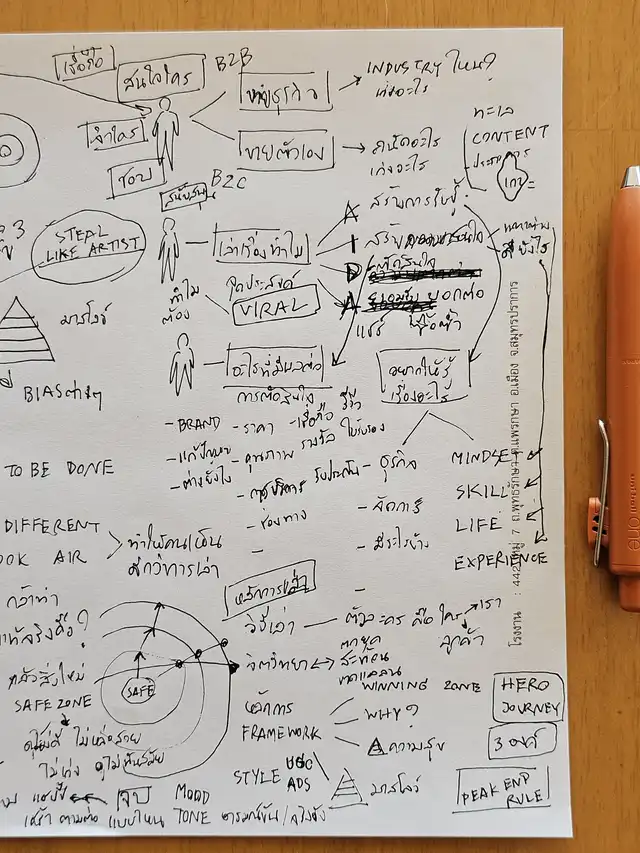 เชื่อถือ
สนใจใคร
B2B
ขายธุรกิจ
INDUSTRY ไหน?
เก่งอะไร
เล่าใคร
ขายตัวเอง
ถนัดอะไร
เก่งอะไร
ทะเล
CONTENT
ชอบ
B2C
สนับสนุน
STEAL
LIKE ARTIST
เล่าเรื่องทำไม
A สร้างการรับรู้
I สร้างความสนใจ
D
A บอกต่อ
แชร์ ซื้อซ้ำ
ดียังไง
ทำไม
ต้อง
จุดประสงค์
VIRAL
มาสโลว์
BIAS ต่างๆ
อะไรที่มีผลต่อ
การตัดสินใจ
อยากให้รู้
เรื่องอะไร
- BRAND - ราคา - เชื่อถือ รีวิว
- แก้ปัญหา - คุณภาพ รางวัล ใบรับรอง
- ต่างยังไง - การบริการ รับประกัน
- ช่องทาง
- ธุรกิจ
- จัดการ
- มีอะไรบ้าง
MINDSET
SKILL
LIFE
EXPERIENCE
TO BE DONE
DIFFERENT
OOK AIR
ทำให้คนเห็น
ดีกว่าการเล่า
หลักการเล่า
วิธีเล่า - ตัวละคร คือ ใคร เรา
ลูกค้า
จิตวิทยา
สะท้อน
WINNING ZONE
HERO
JOURNEY
กลัวสิ่งใหม่
SAFE ZONE
SAFE
หลักการ
FRAMEWORK
WHY?
ความสุข
3 องค์
STYLE UGC
ADS
มาสโลว์
PEAK END
RULE
ดูไม่ดี
ไม่เก่ง ดูไม่ทันสมัย
จบ
แบบไหน
MOOD
TONE
โรงงาน : 442 หมู่ 7 ถ.พุทธรักษา ต.แพรกษา อ.เมือง จ.สมุทรปราการ